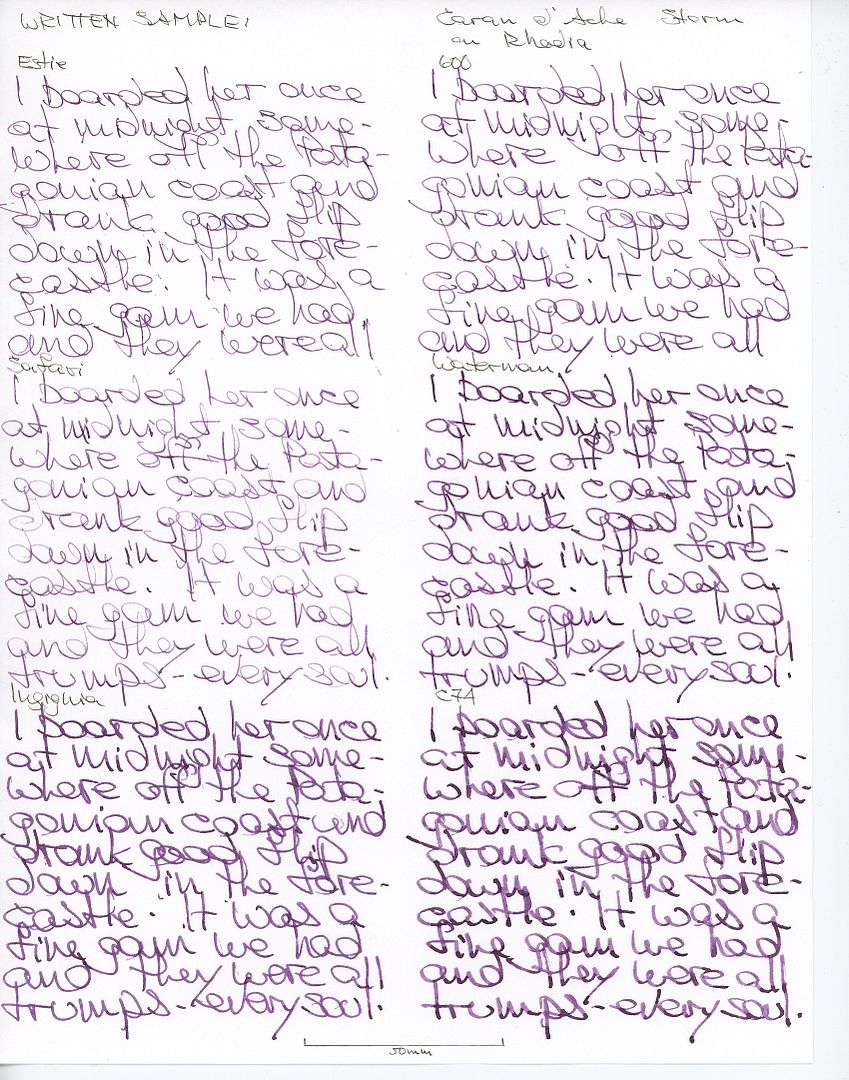 WRITTEN SAMPLE:
Caran d'Ache Storm
on Rhodia
Estie
I boarded her once
at midnight some-
where off the Pata-
gonian coast and
drank good flip
down in the fore-
castle. It was a
fine gam we had
and they were all
600
I boarded her once
at midnight some-
where off the Pata-
gonian coast and
drank good flip
down in the fore-
castle. It was a
fine gam we had
and they were all
Safari
I boarded her once
at midnight some-
where off the Pata-
gonian coast and
drank good flip
down in the fore-
castle. It was a
fine gam we had
and they were all
trumps - every soul.
Waterman
I boarded her once
at midnight some-
where off the Pata-
gonian coast and
drank good flip
down in the fore-
castle. It was a
fine gam we had
and they were all
trumps - every soul.
I boarded her once
at midnight some-
where off the Pata-
gonian coast and
drank good flip
down in the fore-
castle. It was a
fine gam we had
and they were all
trumps - every soul.
C74
I boarded her once
at midnight some-
where off the Pata-
gonian coast and
drank good flip
down in the fore-
castle. It was a
fine gam we had
and they were all
trumps - every soul.
50mm